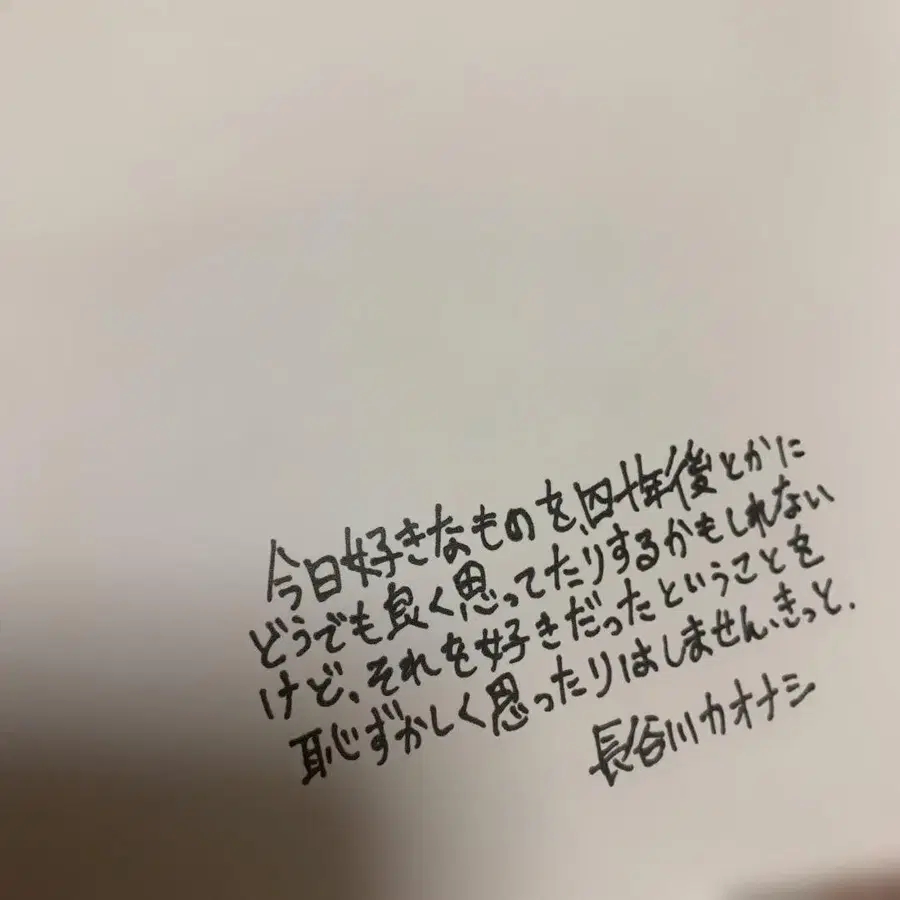 今日好きなものを、四十年後とかに
どうでも良く思ってたりするかもしれない
けど、それを好きだったということを
恥ずかしく思ったりはしません、きっと.
長谷川カオナシ